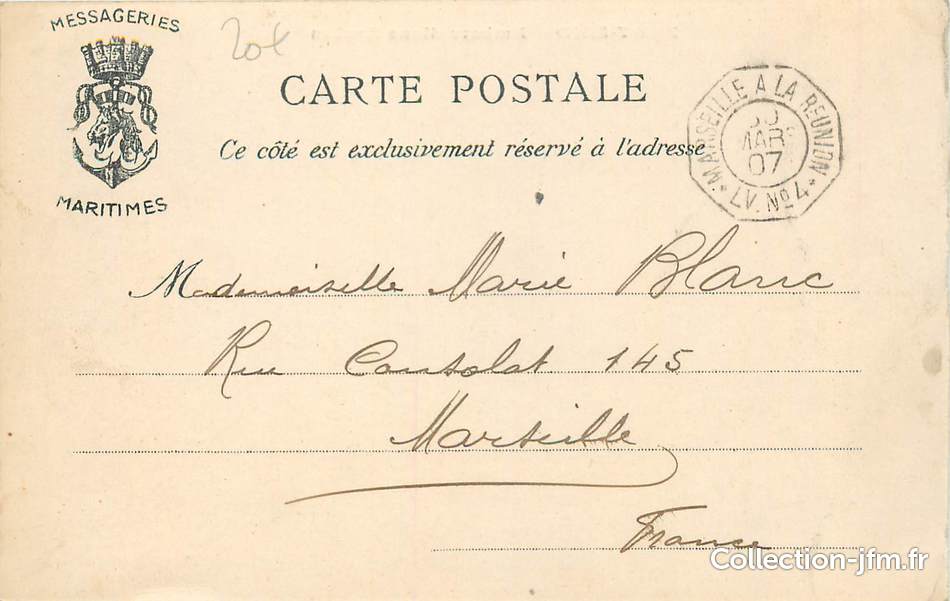 MESSAGERIES
MARITIMES
20€
CARTE POSTALE
Ce côté est exclusivement réservé à l'adresse
MARSEILLE A LA REUNION
MARS
07
* LV. Nº4 *
Mademoiselle Marie Blanc
Rue Consolat 145
Marseille
France
Collection-jfm.fr